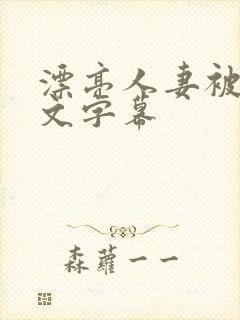 漂亮人妻被
文字幕
森蘿一一